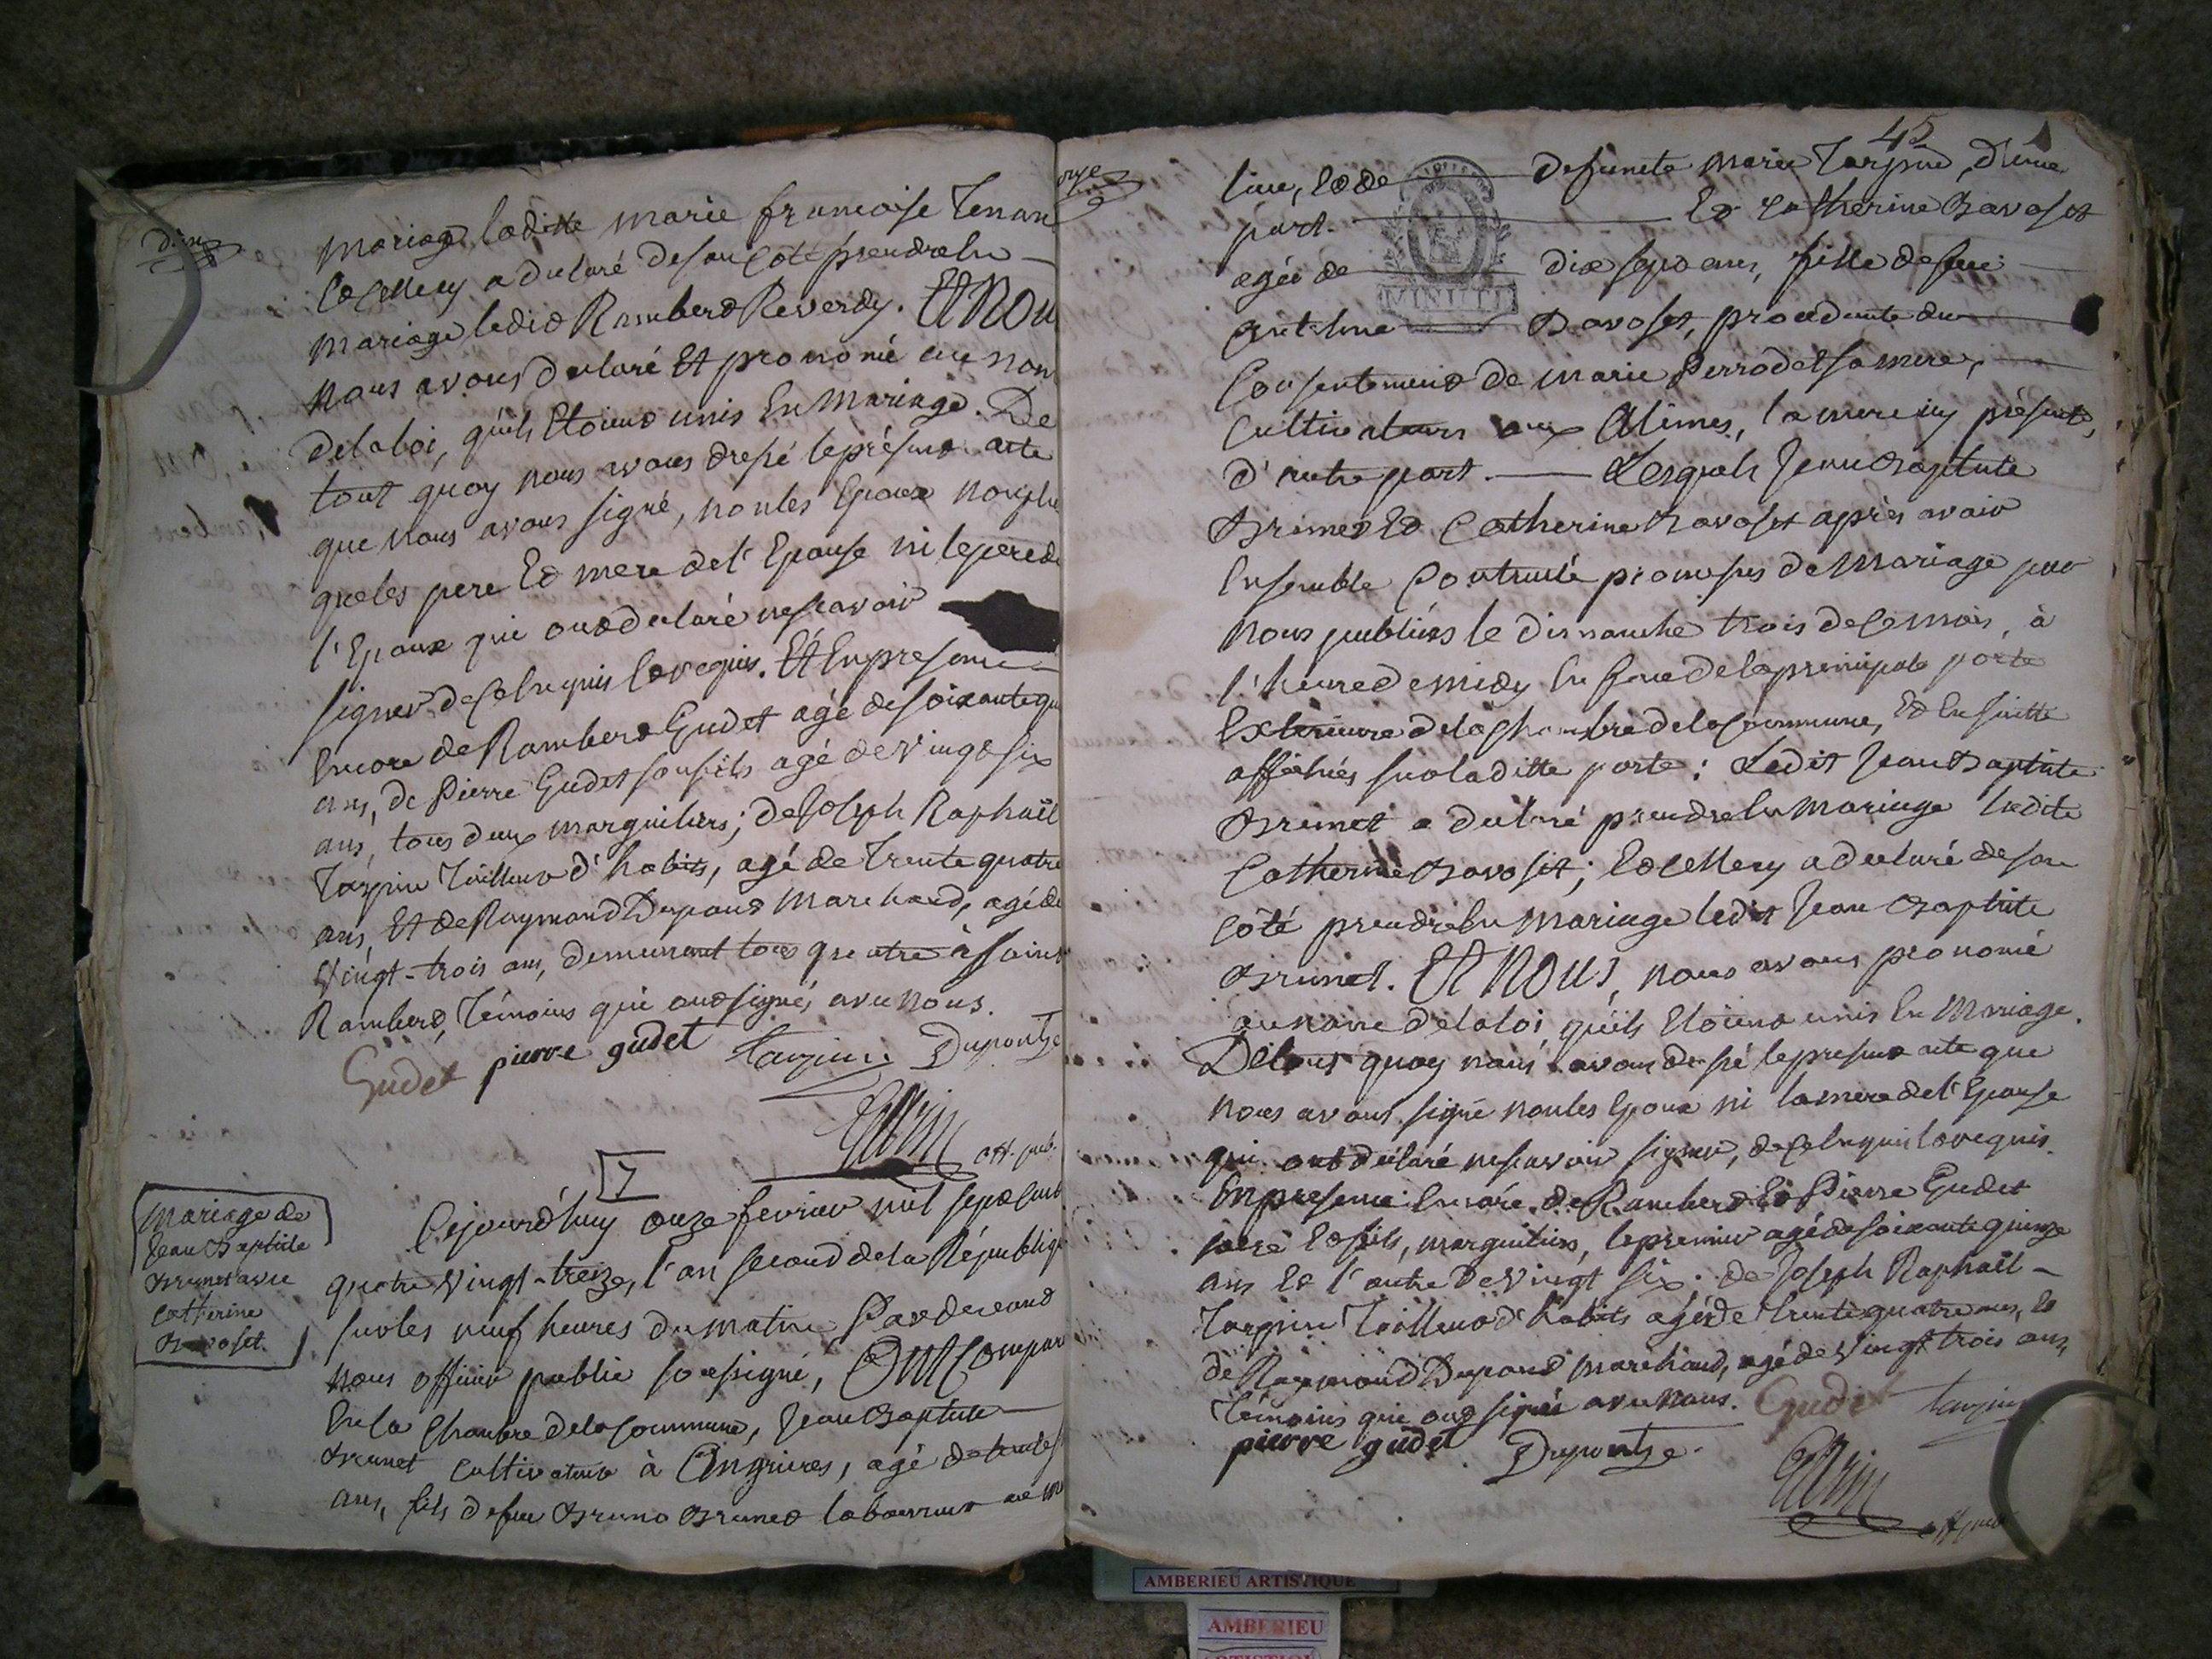 dix
mariage laditte marie francoise Tenan
Et Celley a declaré de son Coté prendre En
mariage ledit Rambert Reverdy. Et Nou
Nous avons declaré Et prononcé au nom
de la loi, qu'ils Etoient unis En Mariage. De
tout quoy nous avons dressé le présent acte
que Nous avons signé, non les Epoux non plu
que les pere Et mere de l'Epouse ni le pere de
l'Epoux qui ont declaré ne scavoir
signer de Ce Enquis Et requis. Et En presence
Encore de Rambert Gudet agé de soixante qu
ans, de Pierre Gudet son fils agé de vingt six
ans, tous deux marguiliers; de Joseph Raphaël
Tarpin Tailleur d'habits, agé de trente quatre
ans, Et de Raymond Dupont Marchand, agé de
vingt-trois ans, demeurant tous quatre à Saint
Rambert, Témoins qui ont signés avec nous.
Gudet pierre gudet tarpin Dupont
off. pub.
7
Mariage de
Jean Baptiste
Brunet avec
Catherine
Bavoset.
Cejourd'huy onze fevrier mil sept cent
quatre vingt-treize, l'an second de la Républiq
sur les neuf heures du matin Pardevant
nous officier public soussigné, Ont Compar
En la Chambre de la Commune, Jean Baptiste
Brunet Cultivateur à Angrieres, agé de trente
ans, fils de feu Bruno Brunet laboureur au m
onze
45
lieu, Et de defuncte Marie Tarpin, d'une
part. Et Catherine Bavoset
agée de dix sept ans, fille de feu
Anthelme Bavoset, procedante du
Consentement de Marie Perrodet sa mere,
Cultivateurs aux Alimes, la mere icy présente,
d'autre part. Lesquels Jean Baptiste
Brunet Et Catherine Bavoset après avoir
Ensemble Contracté promesses de Mariage par
Nous publiées le dimanche trois de Ce mois, à
l'heure de midy En face de la principale porte
Exterieure de la Chambre de la Commune, Et Ensuitte
affichés sur laditte porte: Ledit Jean Baptiste
Brunet a declaré prendre En Mariage ladite
Catherine Bavoset; Et Celley a declaré de son
Côté prendre En Mariage ledit Jean Baptiste
Brunet. Et Nous, nous avons prononcé
au nom de la loi, qu'ils Etoient unis En Mariage.
De tout quoy nous avons dressé le present acte que
nous avons signé non les Epoux ni la mere de l'Epouse
qui ont declaré ne scavoir signer, de Ce Enquis Et requis.
En presence Encore de Rambert Et Pierre Gudet
pere Et fils, marguiliers, le premier agé de soixante quinze
ans Et l'autre de vingt six; de Joseph Raphaël
Tarpin Tailleur d'habits agé de trente quatre ans, Et
de Raymond Dupont Marchand, agé de vingt trois ans,
Témoins qui ont signés avec nous. Gudet tarpin
pierre gudet Dupont
off pub
MINUTE
AMBERIEU ARTISTIQUE
AMBERIEU
ARTISTIQUE